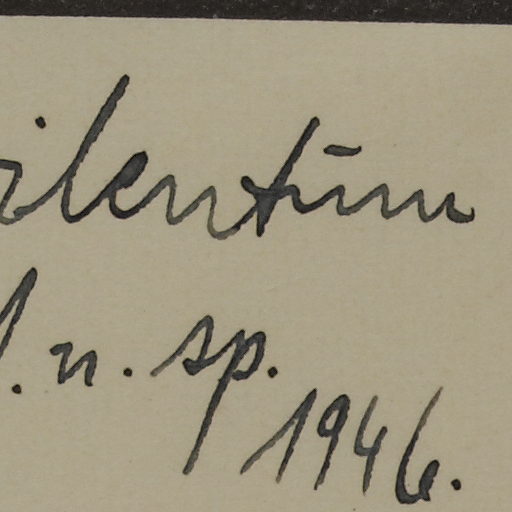 ilentum
. n. sp.
1946.